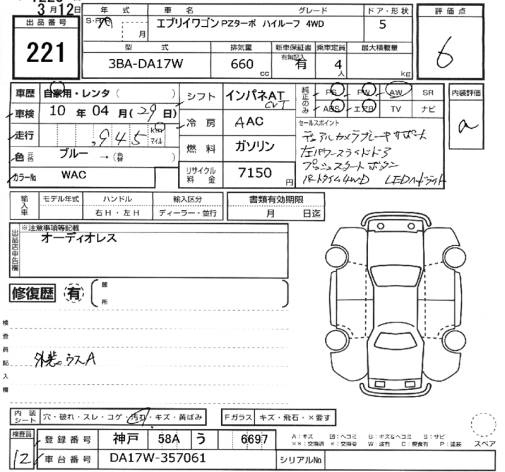 3月12日
出品番号
221
年式
車名
グレード
ドア・形状
評価点
エブリイワゴン PZターボ ハイルーフ 4WD
5
6
月
型式
排気量
新車保証書
有無記入
乗車定員
最大積載量
3BA-DA17W
660 cc
有
4 人
kg
車歴 自家用・レンタ
シフト インパネAT CVT
純正のみ
PS PW AW SR
ABS エアB TV ナビ
内装評価
a
車検 10年 04月 (29日)
走行 945 km マイル
冷房 AAC
セールスポイント
デュアルカメラブレーキサポート
左パワースライドドア
プッシュスタートボタン
パートタイム4WD LEDヘッドライト
色 ブルー → ( )
燃料 ガソリン
カラーNo WAC
リサイクル料金 7150円
輸入車
モデル年式 ハンドル 輸入区分
右H・左H ディーラー・並行
書類有効期限
月 日迄
出品店申告欄
※注意事項等記載
オーディオレス
修復歴 有
箇所
検査員記入欄
外装ウスA
内装シート 穴・破れ・スレ・コゲ・汚れ・キズ・黄ばみ
Fガラス キズ・飛石・×要す
検査員
12
登録番号 神戸 58A う 6697
スペア
車台番号 DA17W-357061
シリアルNo